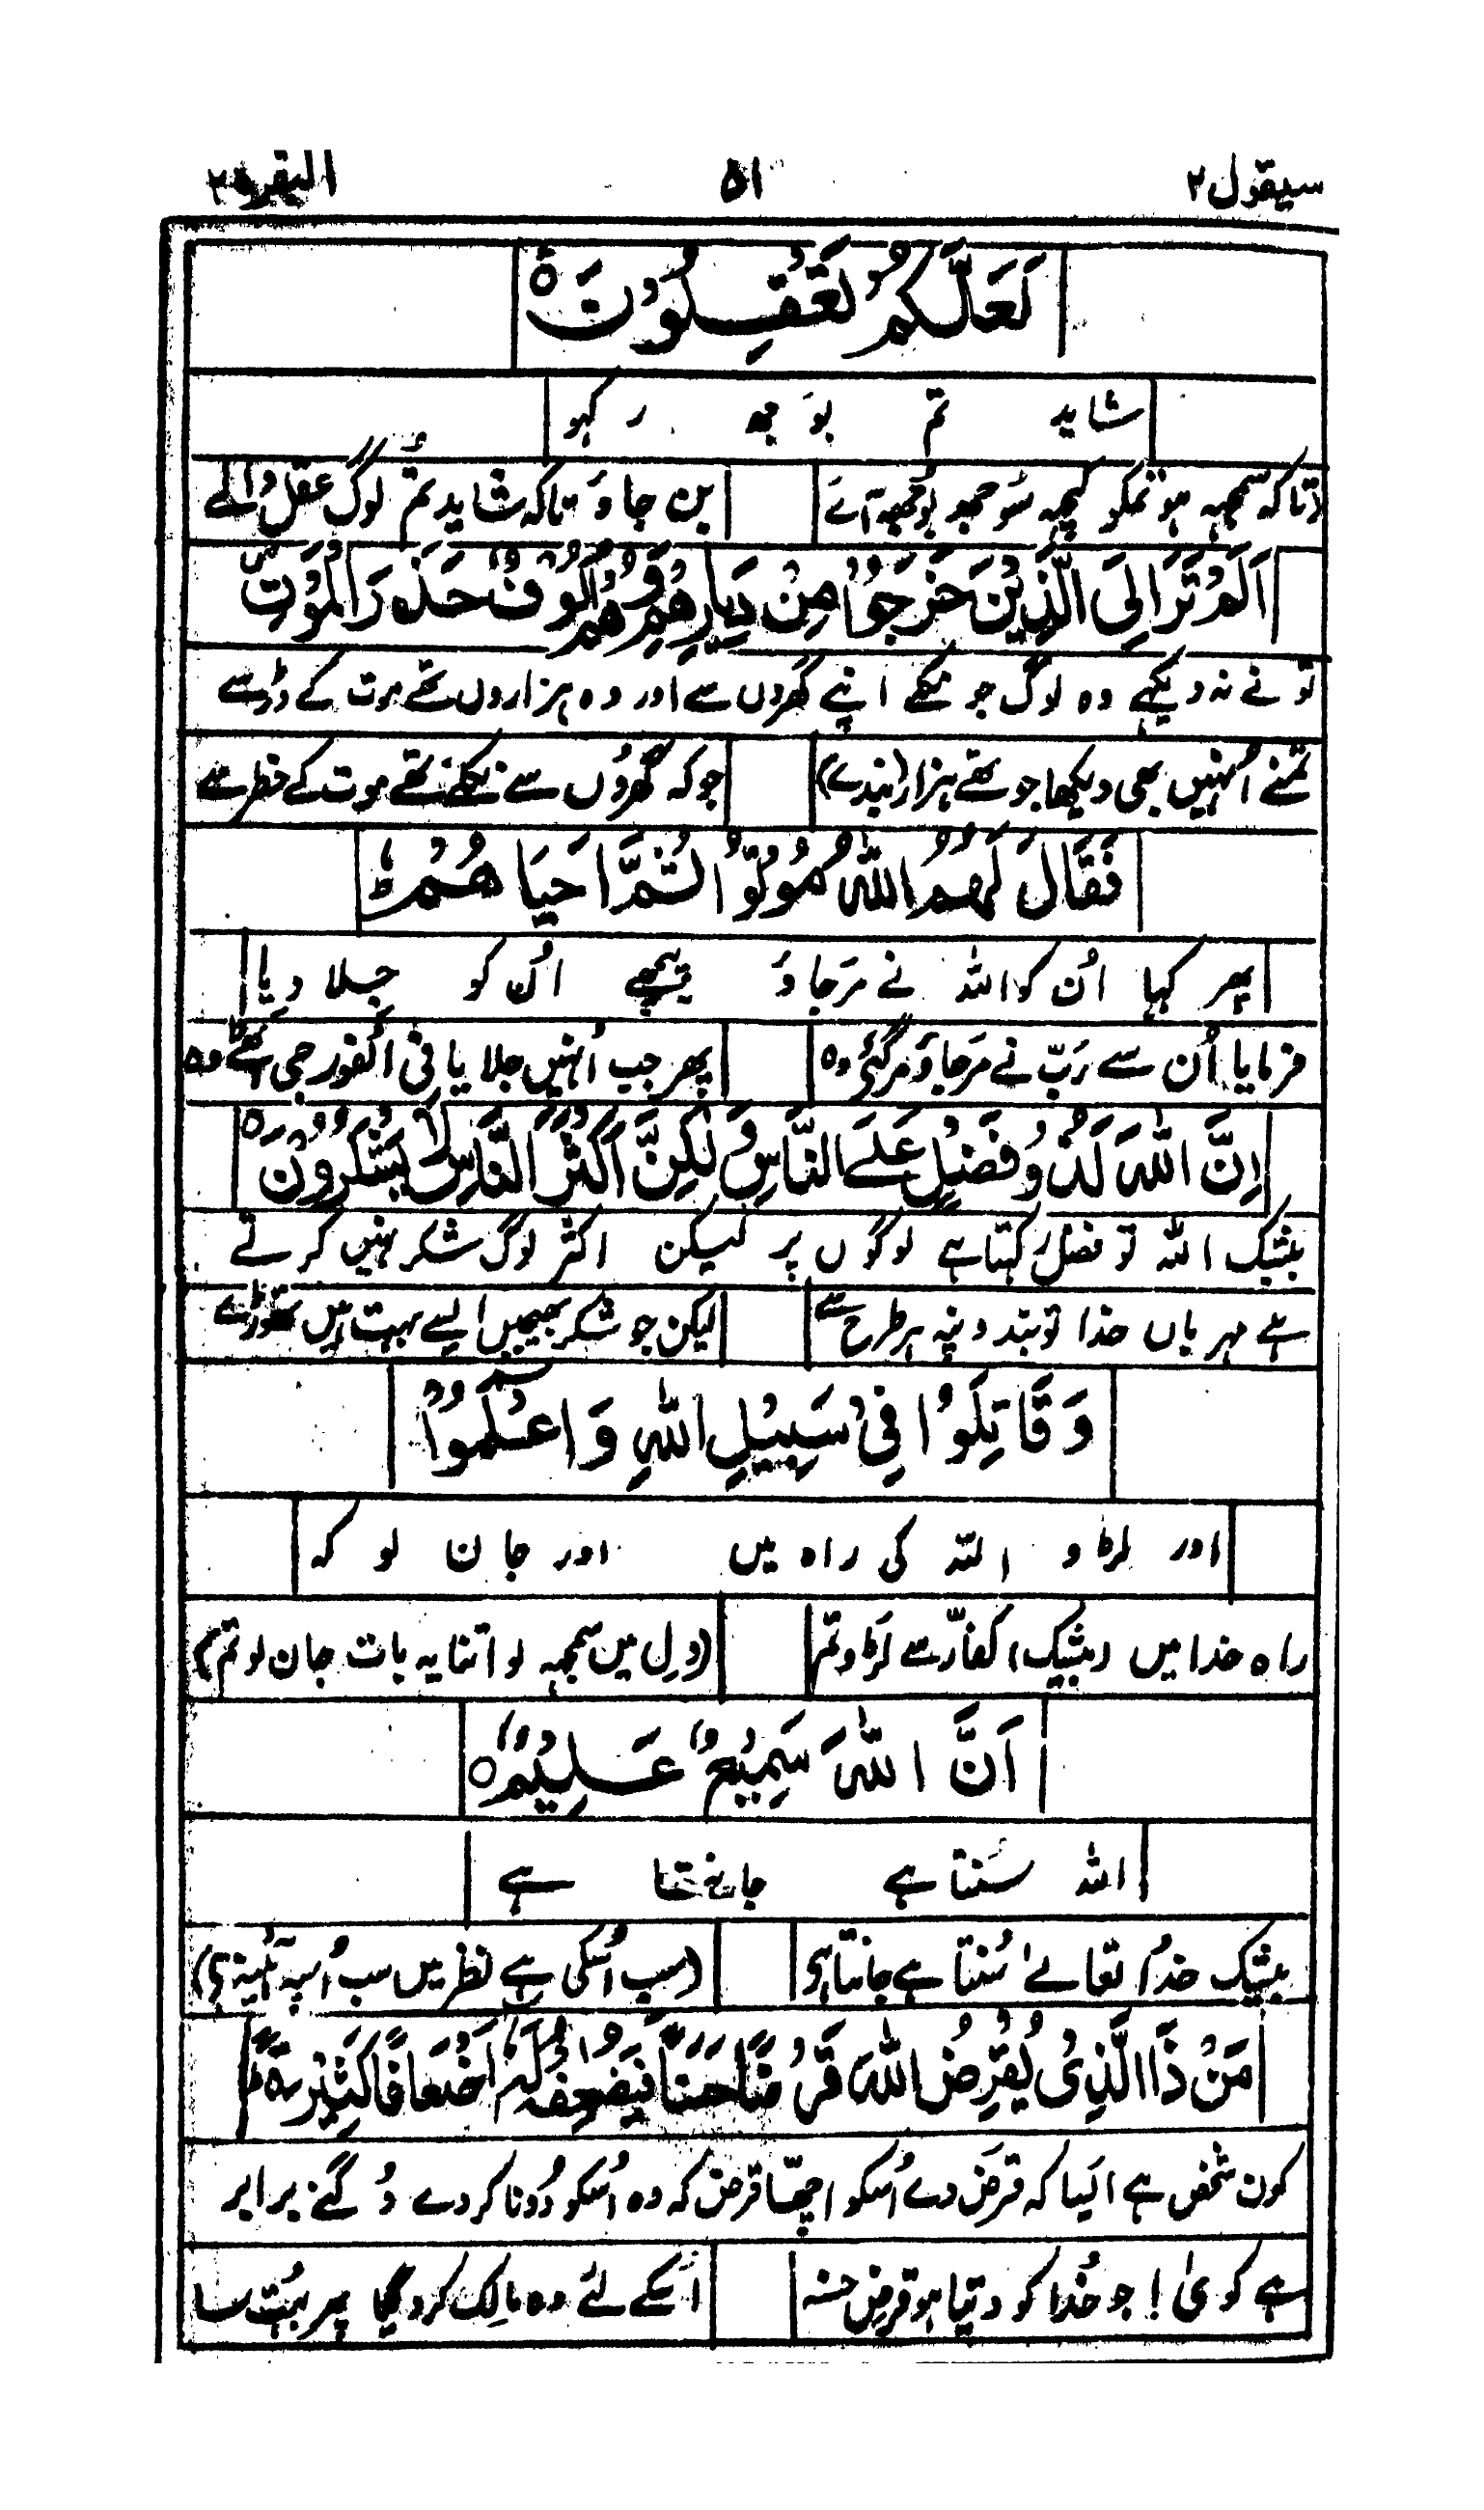 سیقول ۲ ۵۱ البقرة ۲
لَعَلَّكُمْ تَعْقِلُوْنَ ۝
شاید تم بوجہ رکہو
(تاکہ سمجہہ ہو تمکو کچہہ سوجہہ بوجہہ آئے بن جاؤ تاکہ شاید تم لوگ عقل والے
اَلَمْ تَرَ اِلَى الَّذِيْنَ خَرَجُوْا مِنْ دِيَارِهِمْ وَهُمْ اُلُوْفٌ حَذَرَ الْمَوْتِ ص
تو نے نہ دیکہے وہ لوگ جو نکلے اپنے گھروں سے اور وہ ہزاروں تھے موت کے ڈر سے
تمنے اُنہیں بھی دیکھا جو تھے ہزار (بندے) جو کہ گھروں سے نکلے تھے موت کے خطر سے
فَقَالَ لَهُمُ اللّٰهُ مُوْتُوْا ثُمَّ اَحْيَاهُمْ ط
پھر کہا اُن کو اللہ نے مرجاؤ پیچھے اُن کو جلا دیا
فرمایا اُن سے رَبّ نے مرجاؤ مرگئے وہ پھر جب اُنہیں جلایا فی الفور جی اُٹھے وہ
اِنَّ اللّٰهَ لَذُوْ فَضْلٍ عَلَى النَّاسِ وَلٰكِنَّ اَكْثَرَ النَّاسِ لَا يَشْكُرُوْنَ ۝
بیشک اللہ تو فضل رکہتا ہے لوگوں پر لیکن اکثر لوگ شکر نہیں کرتے
ہے مہرباں خدا تو بندونپہ ہر طرح سے لیکن جو شکر بھیجیں ایسے بہت ہیں تھوڑے
وَقَاتِلُوْا فِيْ سَبِيْلِ اللّٰهِ وَاعْلَمُوْٓا
اور لڑو اللہ کی راہ میں اور جان لو کہ
راہ خدا میں (بیشک) کفّار سے لڑو تم (دِل میں سمجہہ لو اتنا یہ بات جان لو تم)
اَنَّ اللّٰهَ سَمِيْعٌ عَلِيْمٌ ۝
اللہ سُنتا ہے جانتا ہے
بیشک خدُا تعالےٰ سُنتا ہے جانتا ہی (سب اُسکی ہے نظر میں سب اُسپہ آئینہ ہی)
مَنْ ذَا الَّذِيْ يُقْرِضُ اللّٰهَ قَرْضًا حَسَنًا فَيُضٰعِفَهٗ لَهٗٓ اَضْعَافًا كَثِيْرَةً ط
کون شخص ہے ایسا کہ قرض دے اُسکو اچھّا قرض کہ وہ اُسکو دُونا کردے دُگنے برابر
ہے کوئی! جو خُدا کو دیتا ہو قرض حسنہ اُسکے لئے وہ مالِک کردیگا پھر بہُت سا